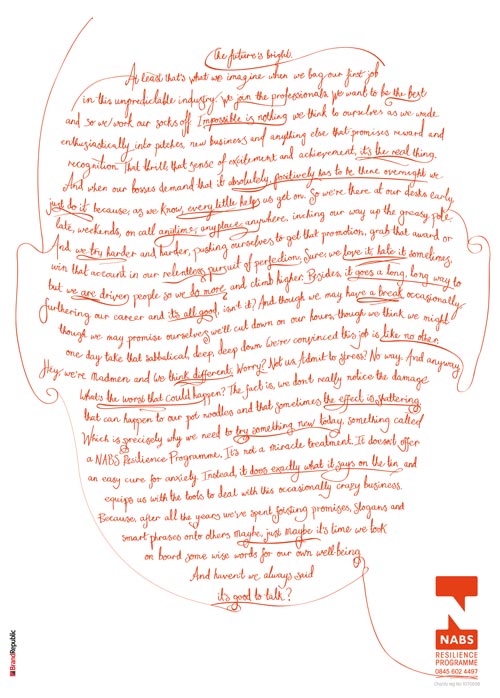 The future is bright.
At least that's what we imagine when we bag our first job
in this unpredictable industry. We join the professionals. We want to be the best
and so we work our socks off. Impossible is nothing we think to ourselves as we wade
enthusiastically into pitches, new business and anything else that promises reward and
recognition. That thrill, that sense of excitement and achievement, it's the real thing.
And when our bosses demand that it absolutely, positively has to be there overnight we
just do it because, as we know, every little helps us get on. So we're there at our desks early,
late, weekends, on call anytime, anyplace, anywhere, inching our way up the greasy pole.
And we try harder and harder, pushing ourselves to get that promotion, grab that award or
win that account in our relentless pursuit of perfection. Sure, we love it, hate it sometimes,
but we are driven people so we do more and climb higher. Besides, it goes a long, long way to
furthering our career and it's all good, isn't it? And though we may have a break occasionally,
though we may promise ourselves we'll cut down on our hours, though we think we might
one day take that sabbatical, deep, deep down we're convinced this job is like no other.
Hey, we're madmen and we think different. Worry? Not us. Admit to stress? No way. And anyway,
what's the worst that could happen? The fact is, we don't really notice the damage
that can happen to our pot noodles and that sometimes the effect is shattering.
Which is precisely why we need to try something new today, something called
a NABS Resilience Programme. It's not a miracle treatment. It doesn't offer
an easy cure for anxiety. Instead, it does exactly what it says on the tin, and
equips us with the tools to deal with this occasionally crazy business.
Because, after all the years we've spent foisting promises, slogans and
smart phrases onto others maybe, just maybe it's time we took
on board some wise words for our own well-being.
And haven't we always said
it's good to talk?
NABS
RESILIENCE
PROGRAMME
0845 602 4497
BrandRepublic